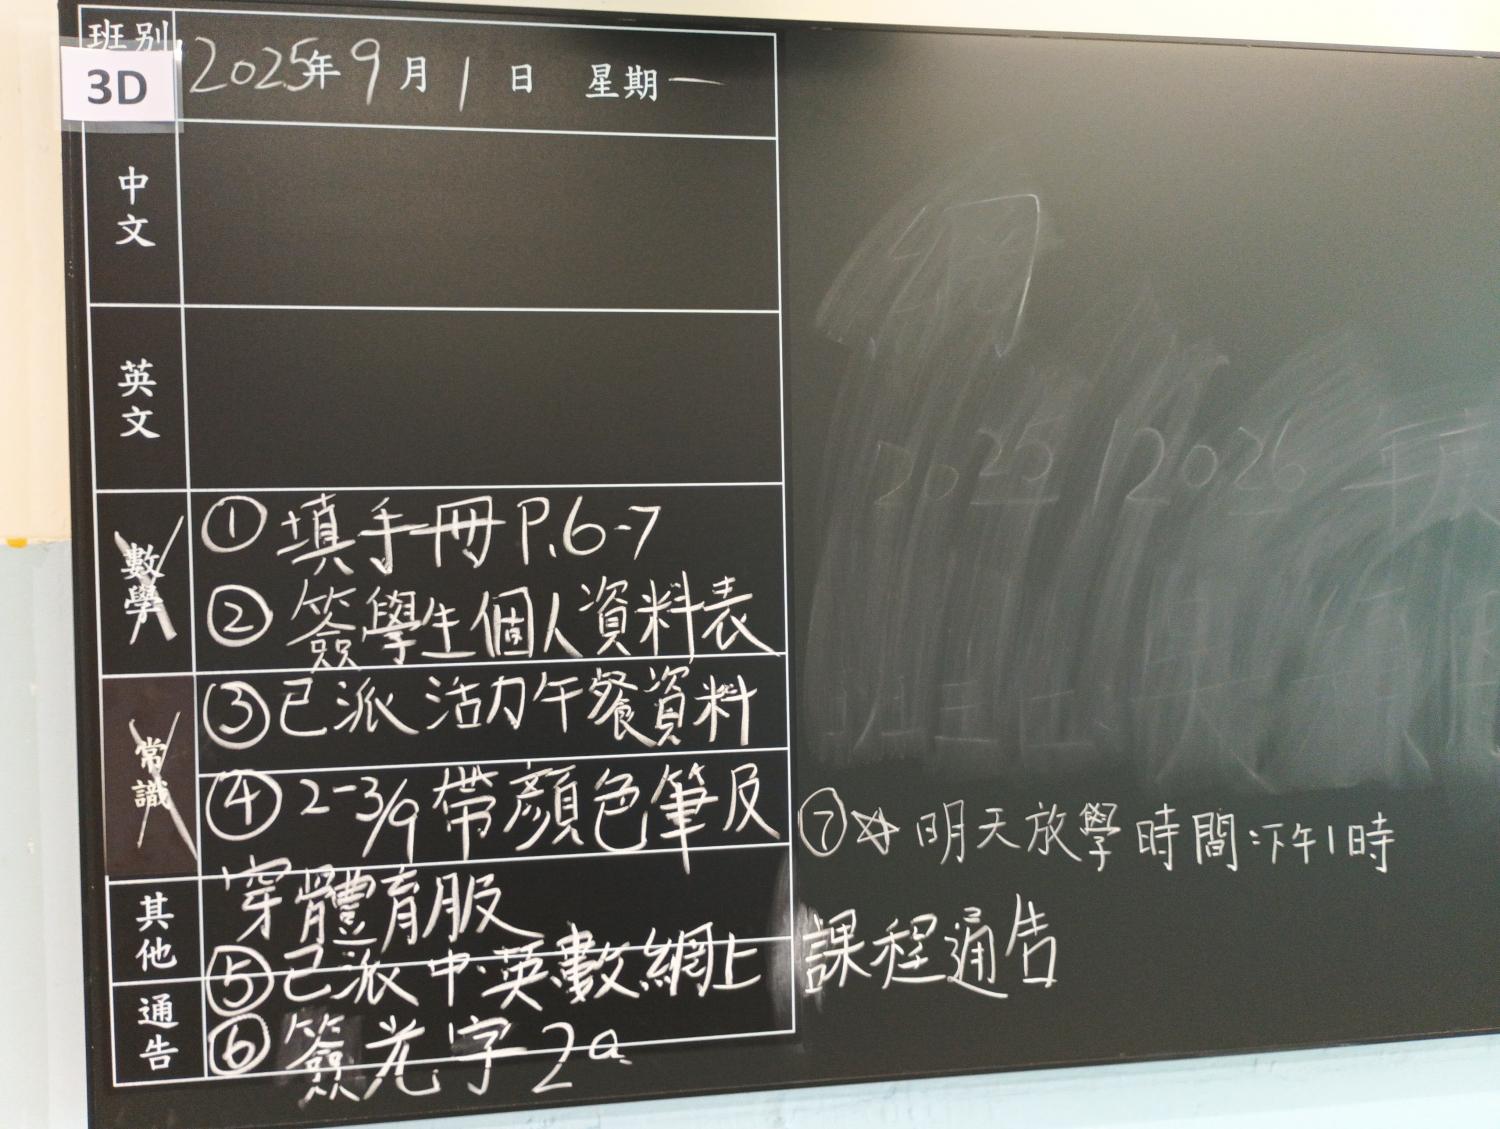 班別
3D
2025年9月1日 星期一
中文
英文
數學
① 填手冊 P.6-7
② 簽學生個人資料表
常識
③ 已派活力午餐資料
④ 2-3/9 帶顏色筆及
穿體育服
其他
⑤ 已派中.英數網上課程通告
通告
⑥ 簽光字 2a
⑦ ☆ 明天放學時間:下午1時
2025 2026 年度